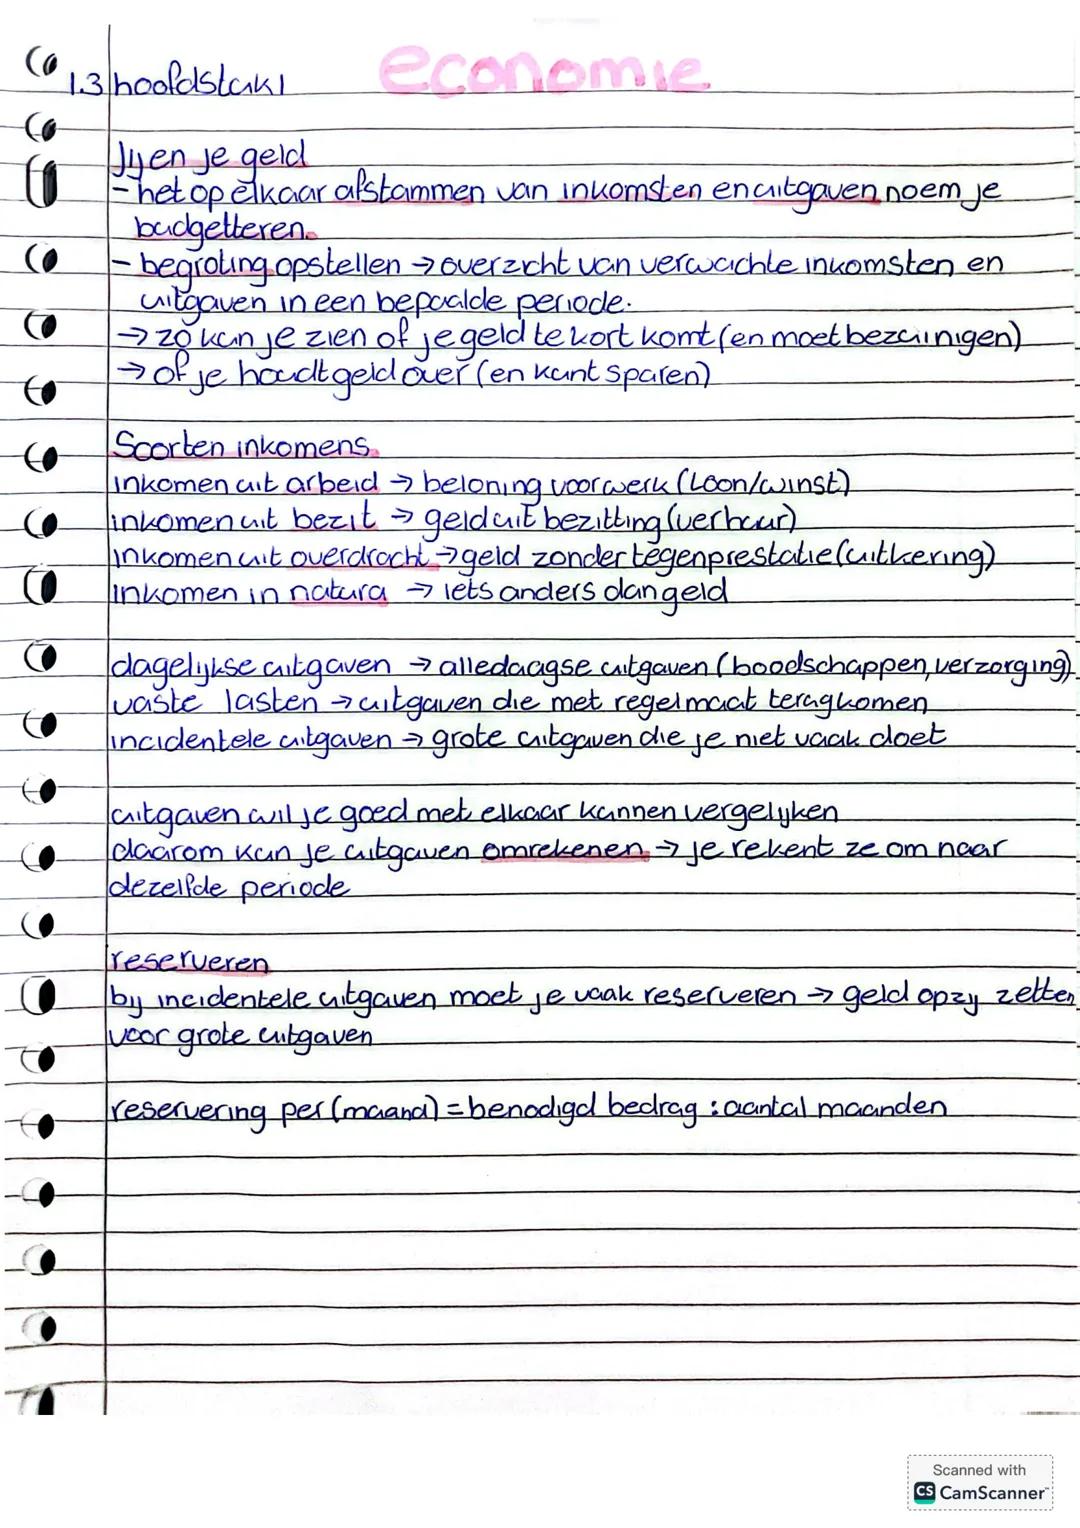 economie
1.3 hoofdstuk 1
Jij en je geld
- het op elkaar afstammen van inkomsten en uitgaven noem je
budgetteren.
- begroting opstellen → overzicht van verwachte inkomsten en
uitgaven in een bepaalde periode.
→ zo kun je zien of je geld te kort komt (en moet bezuinigen)
→ of je houdt geld over (en kunt sparen)
Soorten inkomens.
inkomen uit arbeid → beloning voor werk (Loon/winst)
inkomen uit bezit → geld uit bezitting (verhuur)
inkomen uit overdracht → geld zonder tegenprestatie (uitkering)
inkomen in natura → iets anders dan geld
dagelijkse uitgaven → alledaagse uitgaven (boodschappen, verzorging)
vaste lasten → uitgaven die met regelmaat terugkomen
incidentele uitgaven → grote uitgaven die je niet vaak doet
uitgaven wil je goed met elkaar kunnen vergelijken
daarom kun je uitgaven omrekenen → je rekent ze om naar
dezelfde periode
reserveren
bij incidentele uitgaven moet je vaak reserveren → geld opzij zetten
voor grote uitgaven
reservering per (maand) = benodigd bedrag : aantal maanden
Scanned with
CS CamScanner